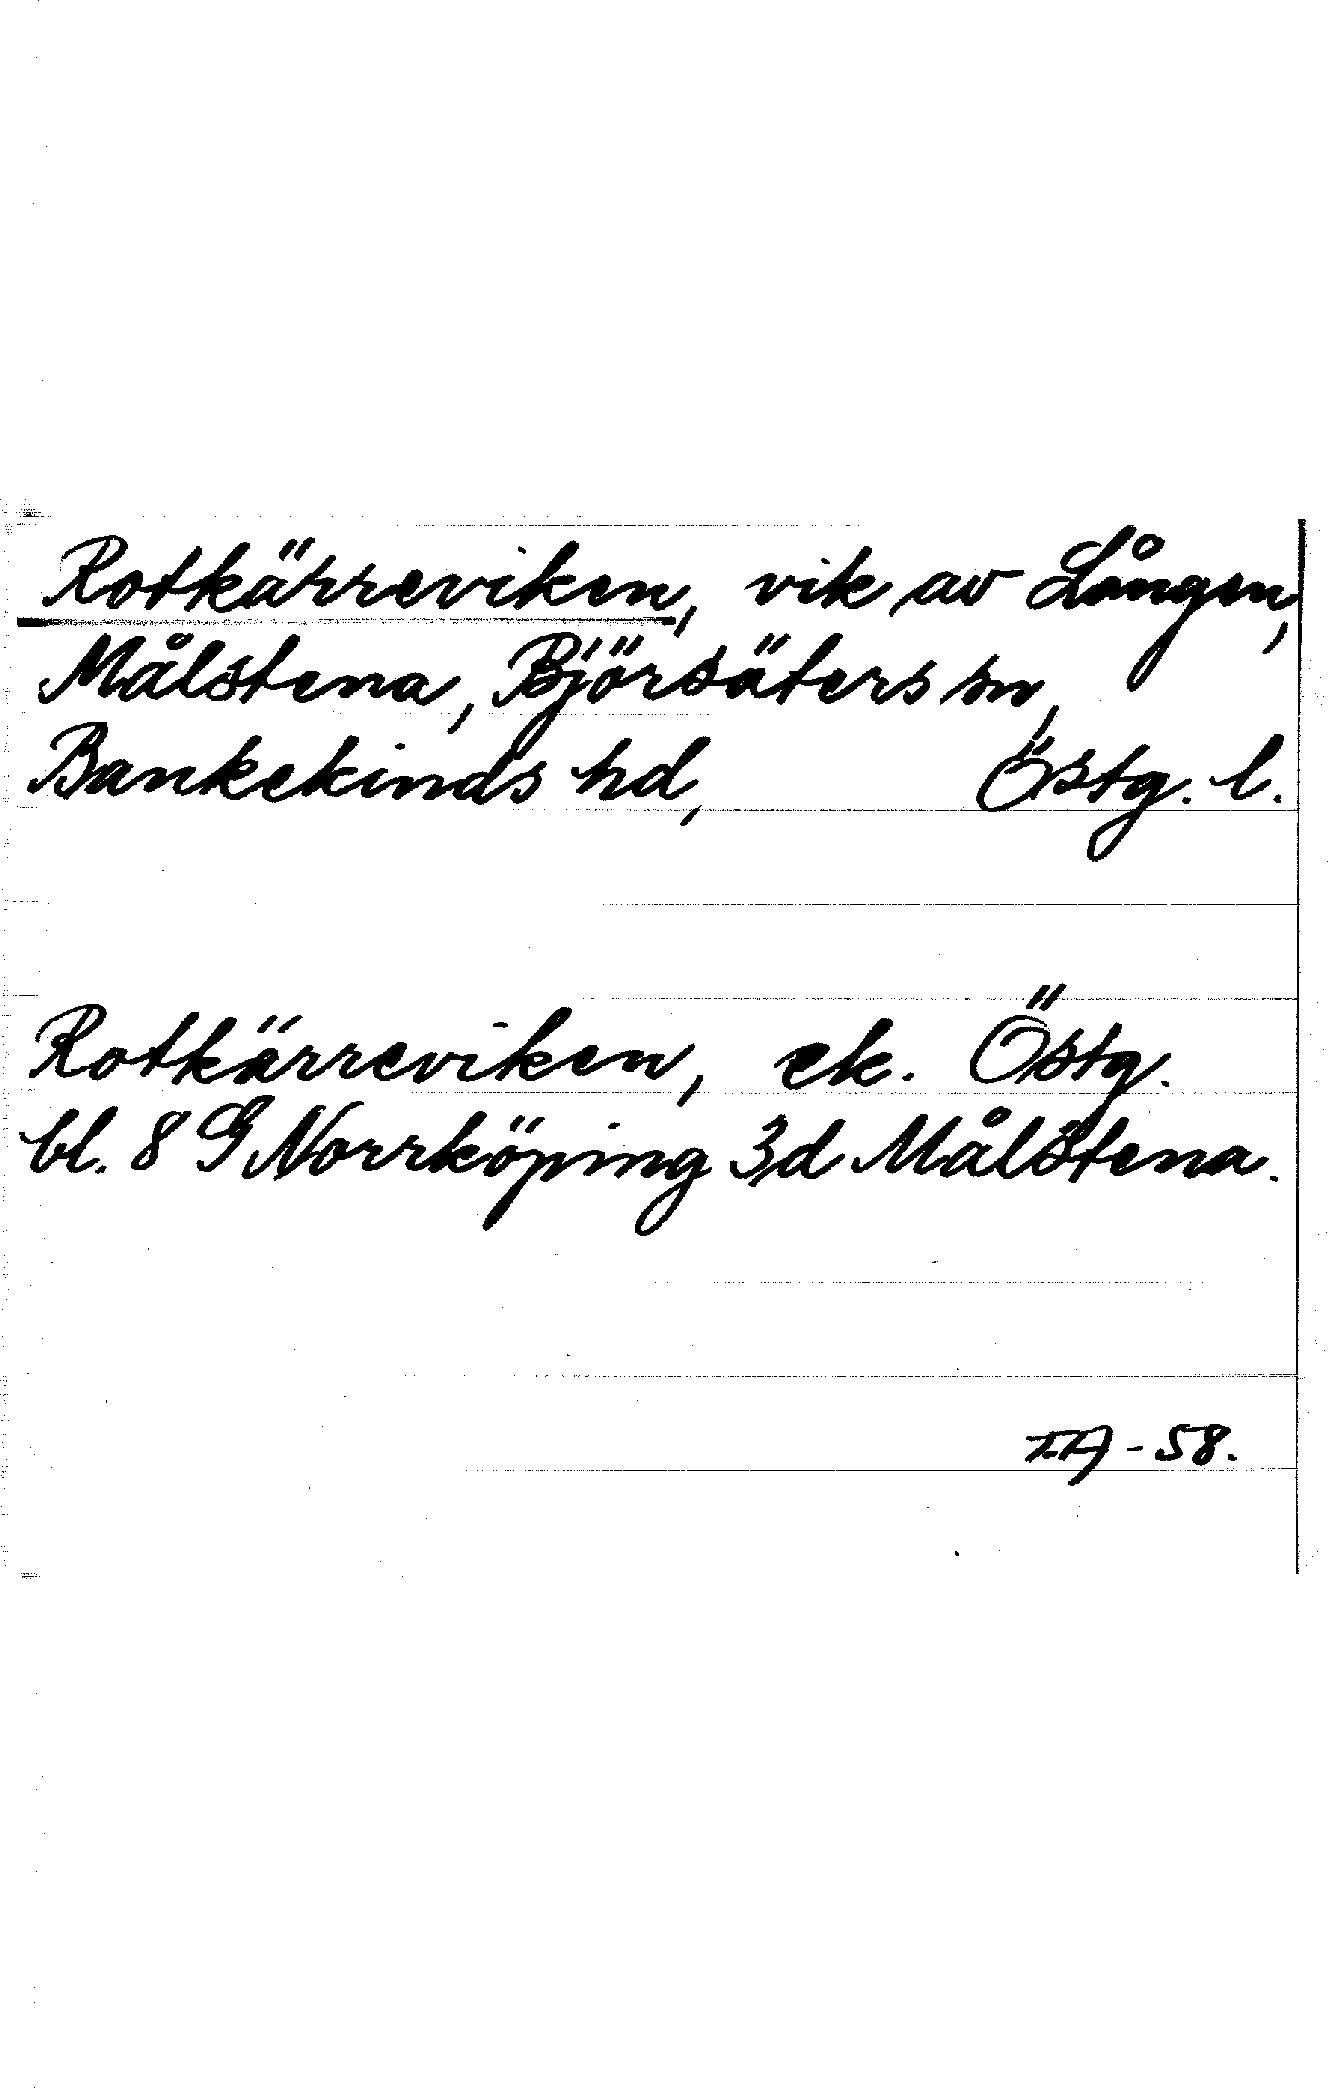 Rotkärreviken, vik av Lången,
Målstena, Björsäters sn,
Bankekinds hd, Östg. l.
Rotkärreviken, ek. Östg.
bl. 8 G Norrköping 3d Målstena.
TA-58.